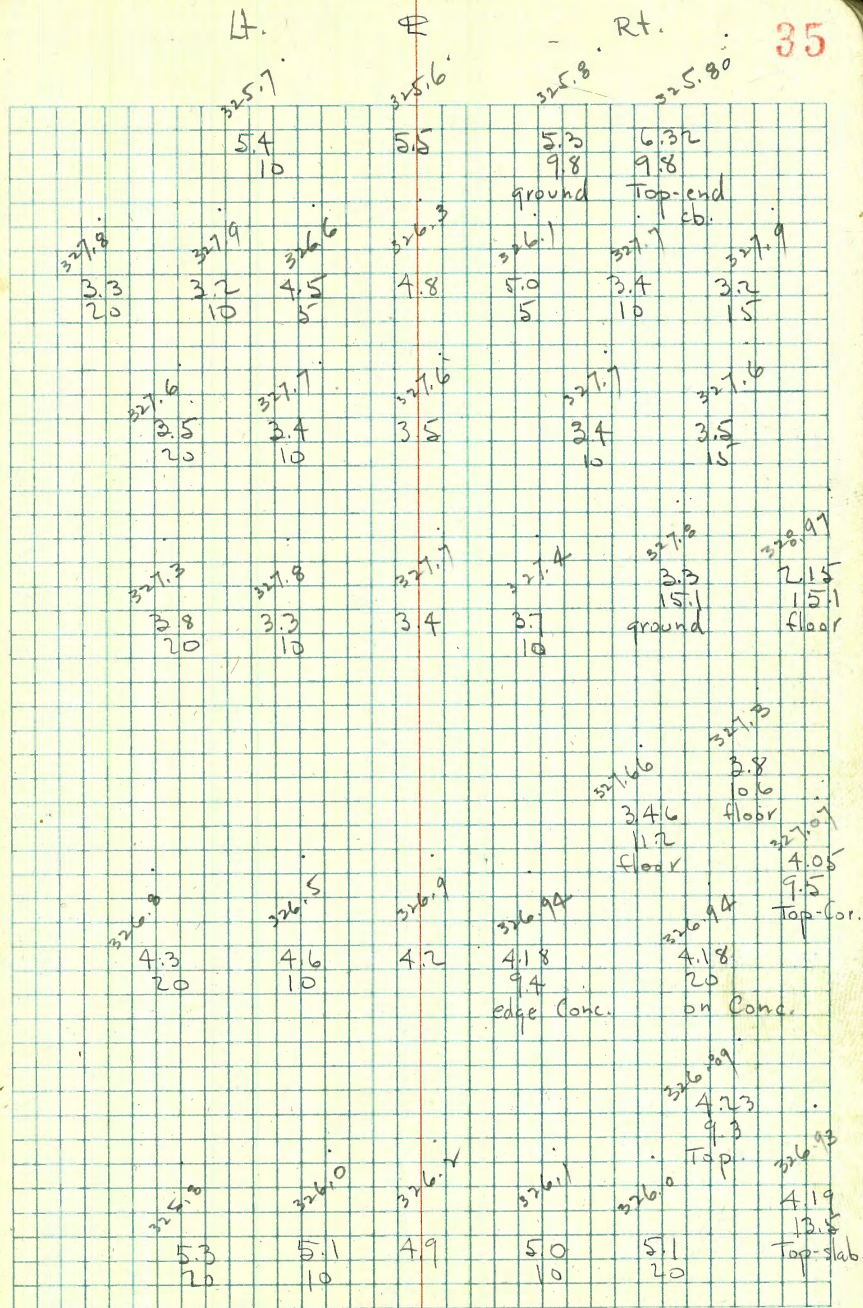 Lt. ℄ Rt. 35
325.7 325.6 325.8 325.80
5.4 5.5 5.3 6.32
10 9.8 9.8
ground Top-end
cb.
327.8 327.9 326.6 326.3 326.1 327.7 327.9
3.3 3.2 4.5 4.8 5.0 3.4 3.2
20 10 5 5 10 15
327.6 327.7 327.6 327.7 327.6
3.5 3.4 3.5 3.4 3.5
20 10 10 15
327.3 327.8 327.7 327.4 327.8 328.97
3.8 3.3 3.4 3.7 3.3 2.15
20 10 10 15.1 15.1
ground floor
327.66 327.3
3.46 3.8
11.2 10.6
floor floor
327.07
4.05
9.5
Top-Cor.
326.8 326.5 326.9 326.94 326.94
4.3 4.6 4.2 4.18 4.18
20 10 9.4 20
edge Conc. on Conc.
326.89
4.23
9.3
Top.
325.8 326.0 326.2 326.1 326.0 326.93
5.3 5.1 4.9 5.0 5.1 4.19
20 10 10 20 13.5
Top-slab